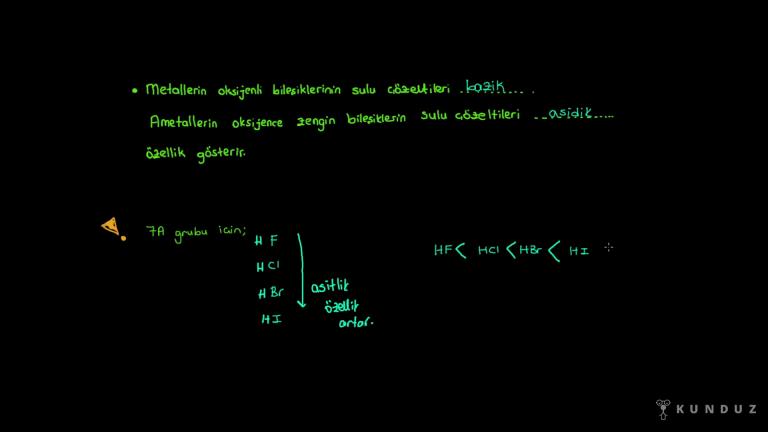 • Metallerin oksijenli bileşiklerinin sulu çözeltileri ..bazik.... .
Ametallerin oksijence zengin bileşiklerin sulu çözeltileri ...asidik.....
özellik gösterir.
7A grubu için;
H F
H Cl
H Br
H I
asitlik
özellik
artar.
HF < HCl < HBr < HI
KUNDUZ